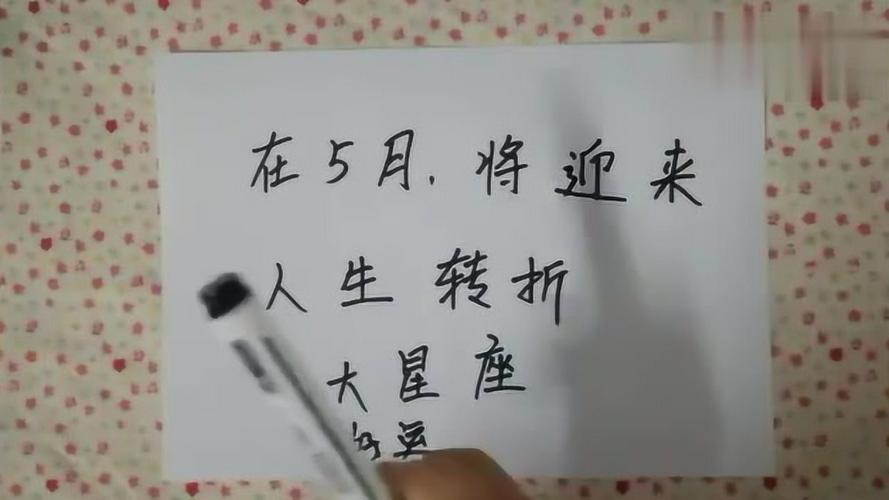 在5月.将迎来
人生转折
大星座
好运